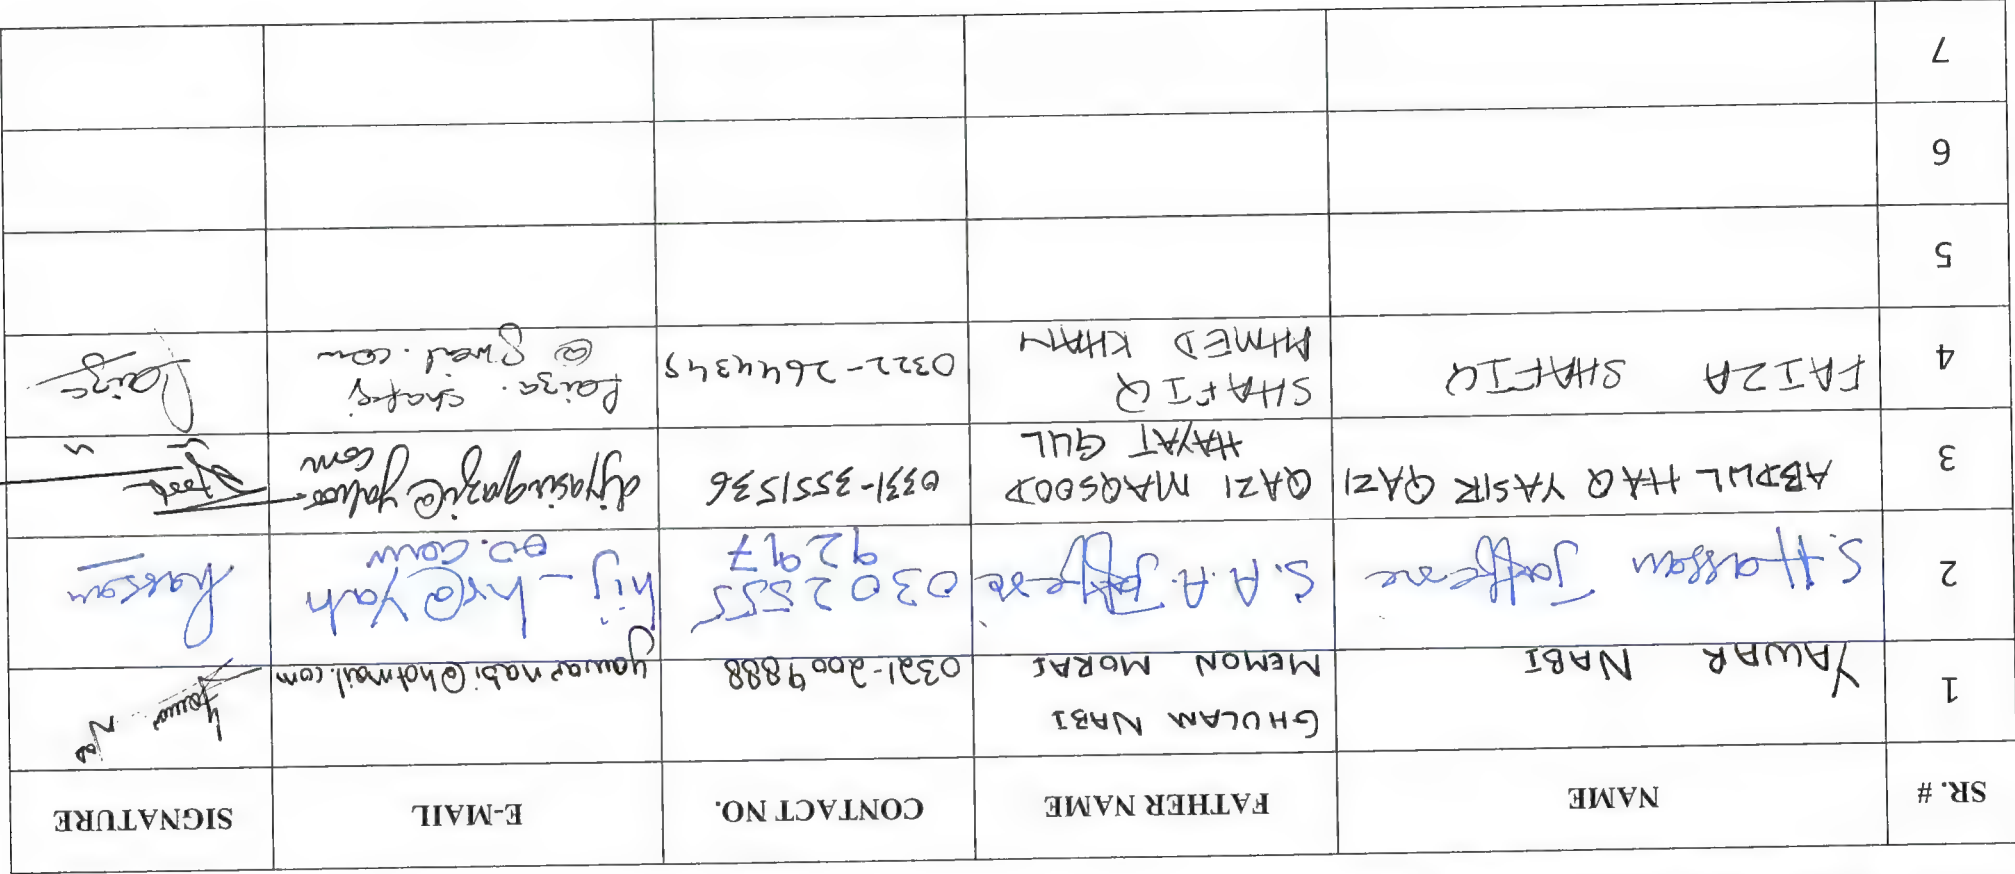 SR. # NAME FATHER NAME CONTACT NO. E-MAIL SIGNATURE
1 YAWAR NABI GHULAM NABI MEMON MORAI 0321-2009888 yawarnabi@hotmail.com Yawar
2 S. Hassan Jafferee S. A. A. Jafferee 0302555 9297 hij-hr@yah oo.com Hassan
3 ABDUL HAQ YASIR QAZI QAZI MAQSOOD HAYAT GUL 0331-3551536 djyasirqazi@yahoo. com
4 FAIZA SHAFIQ SHAFIQ AHMED KHAN 0322-2644345 faiza.shafqi @gmail.com Faiza
5
6
7